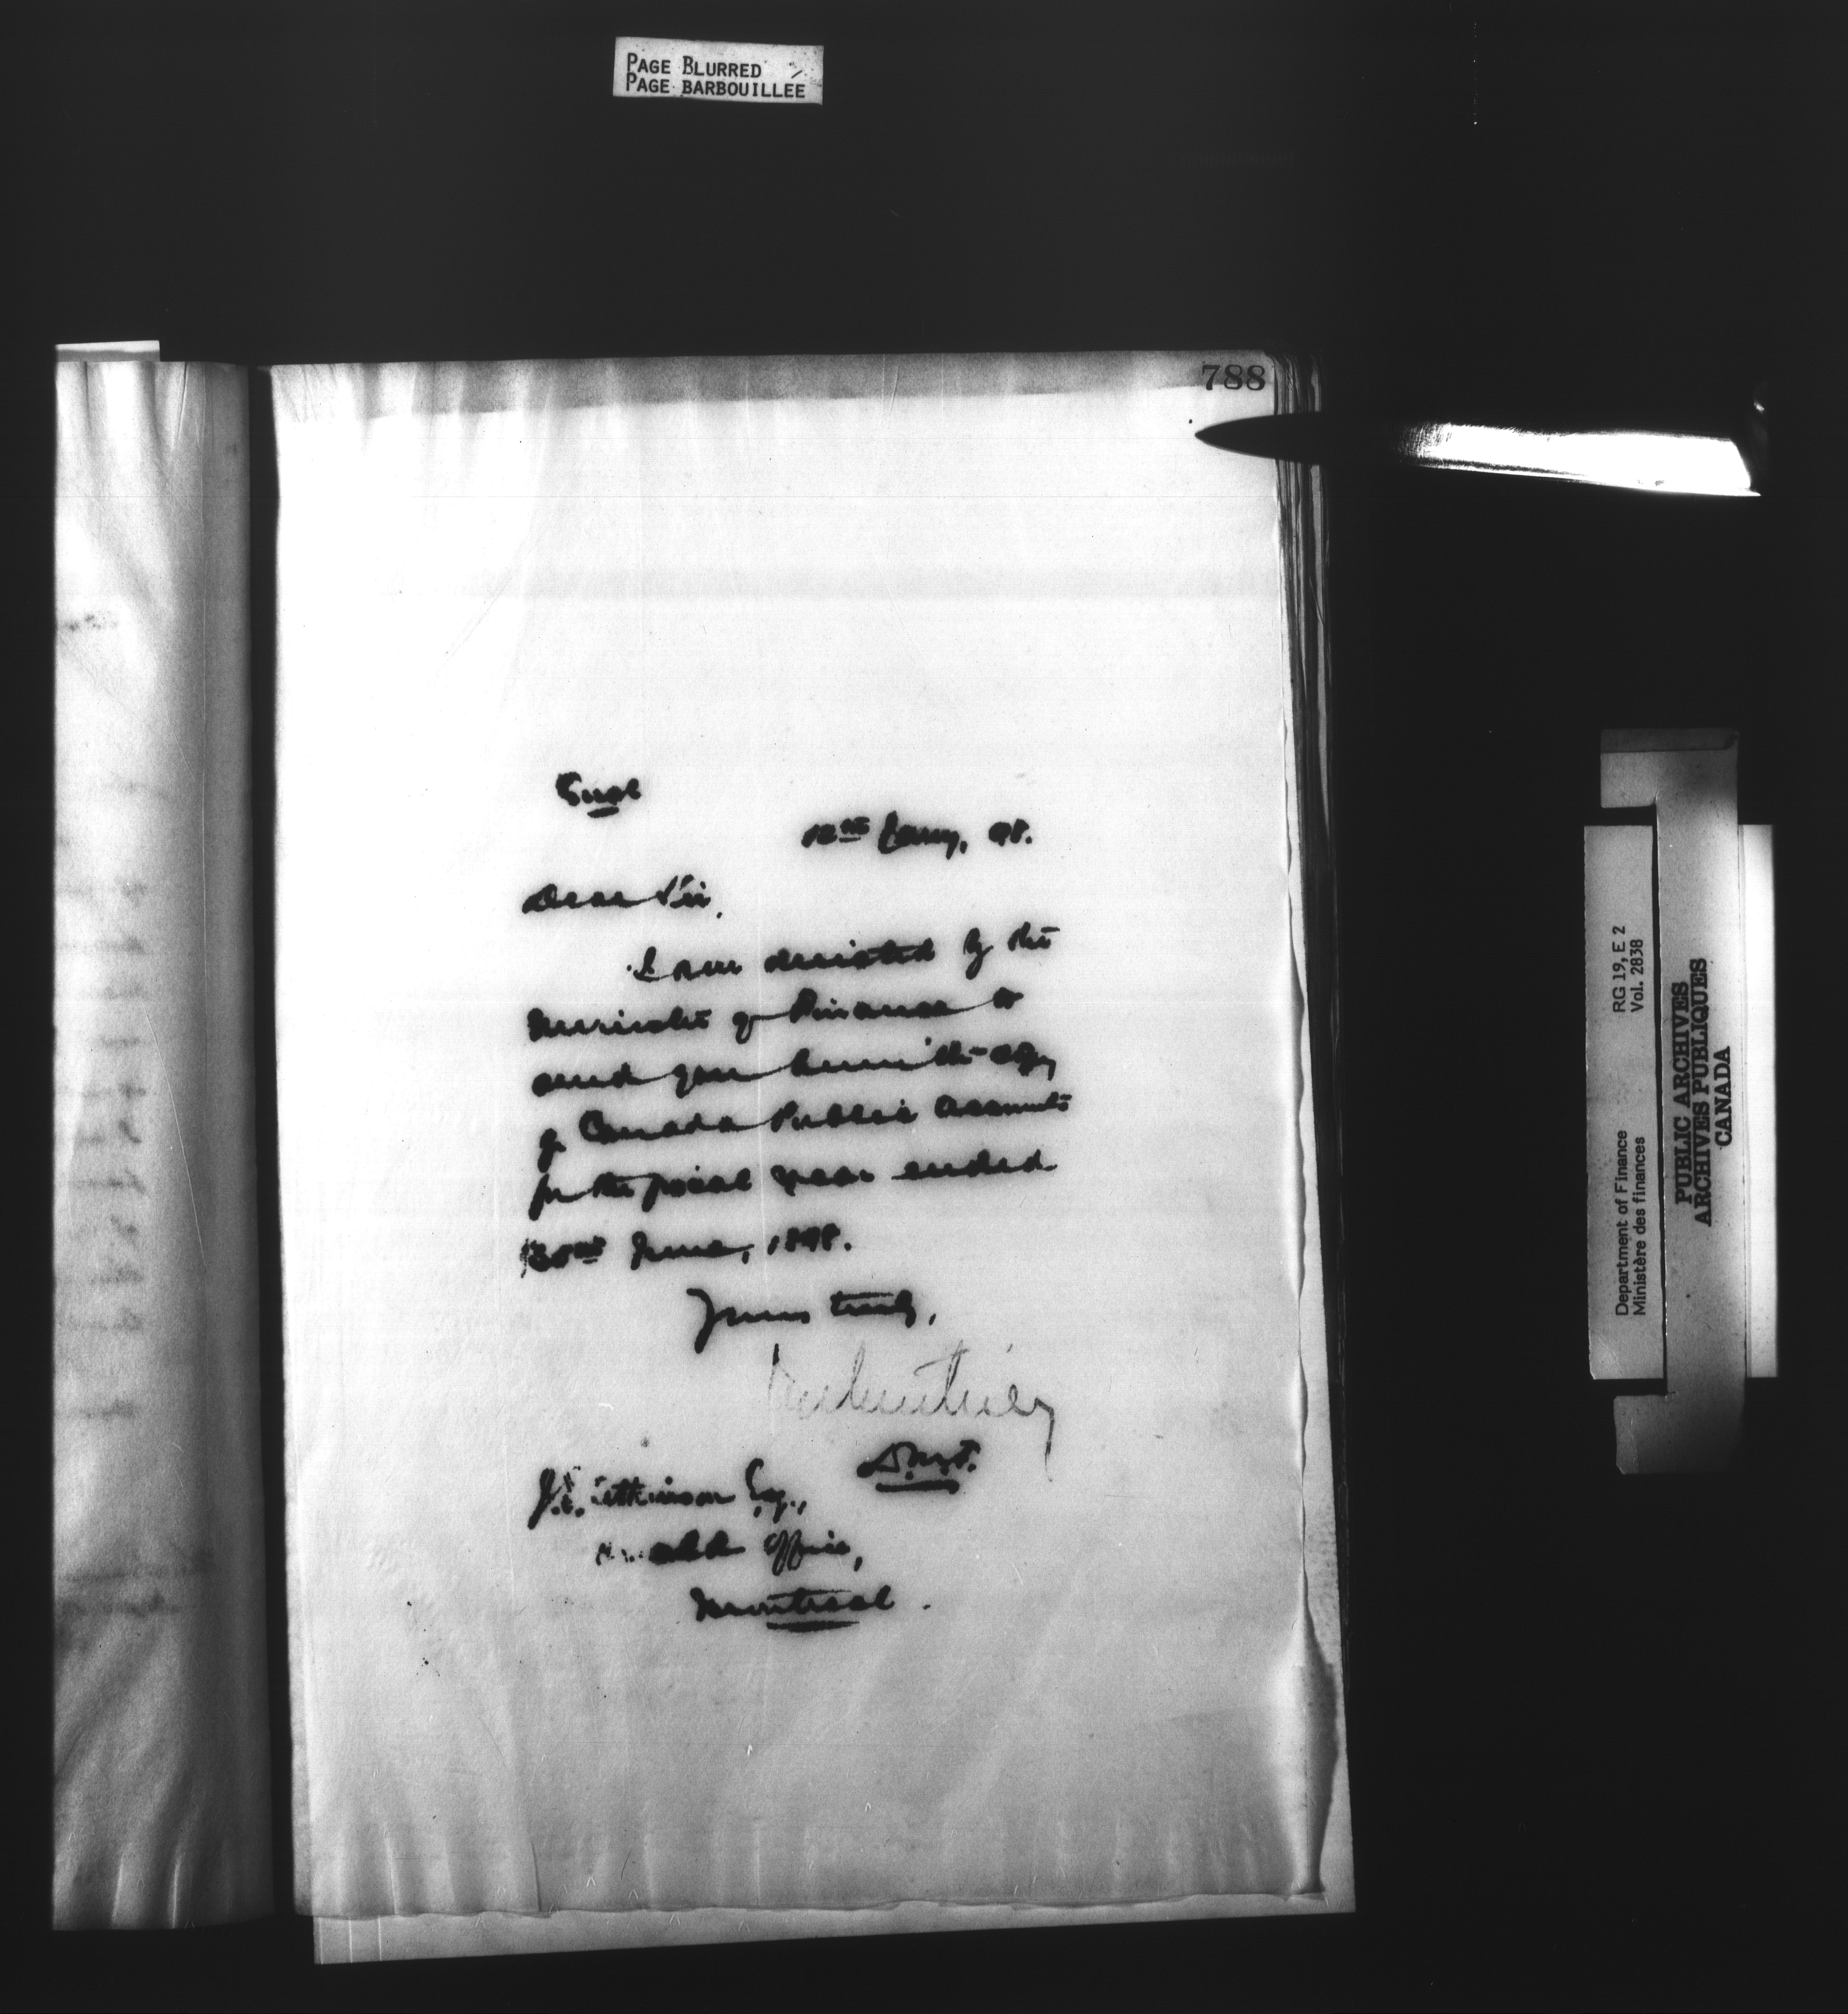 PAGE BLURRED
PAGE BARBOUILLEE
788
Encl
12th Jany, 98.
Dear Sir,
I am directed by the
Minister of Finance to
send you herewith copy
of Canada Public Accounts
for the fiscal year ended
30th June, 1898.
Yours truly,
D.M.F.
J.E. Atkinson Esq.,
Herald Office,
Montreal.
RG 19, E 2
Vol. 2838
Department of Finance
Ministère des finances
PUBLIC ARCHIVES
ARCHIVES PUBLIQUES
CANADA